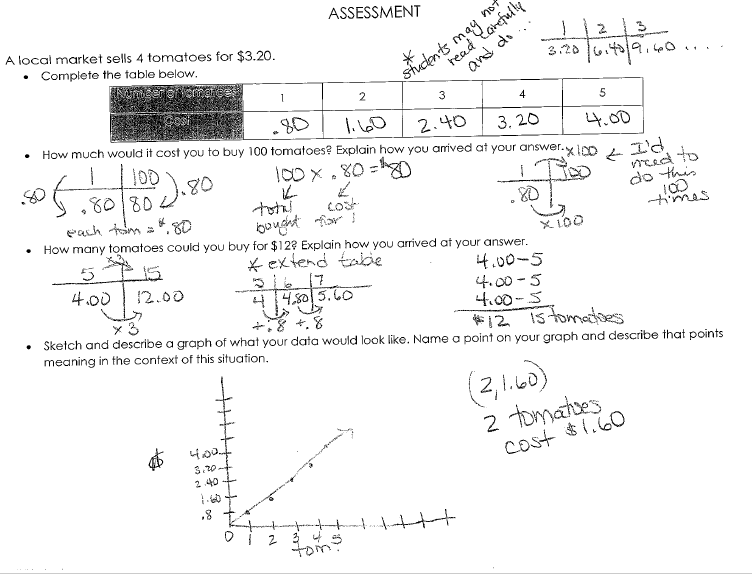 ASSESSMENT
* students may not
read carefully
and do...
1 2 3
3.20 6.40 9.60 ....
A local market sells 4 tomatoes for $3.20.
• Complete the table below.
Number of Tomatoes 1 2 3 4 5
Cost .80 1.60 2.40 3.20 4.00
• How much would it cost you to buy 100 tomatoes? Explain how you arrived at your answer.
.80 1 100 .80
.80 80
each tom = $.80
100 x .80 = $80
total cost
bought for 1
x100
1 100
.80
x100
← I'd
need to
do this
100
times
• How many tomatoes could you buy for $12? Explain how you arrived at your answer.
x3
5 15
4.00 12.00
x3
* extend table
5 6 7
4 4.80 5.60
+.8 +.8
4.00-5
4.00-5
4.00-5
$12 15 tomatoes
• Sketch and describe a graph of what your data would look like. Name a point on your graph and describe that points
meaning in the context of this situation.
(2,1.60)
2 tomatoes
cost $1.60
$
4.00
3.20
2.40
1.60
.8
0 1 2 3 4 5
tom.